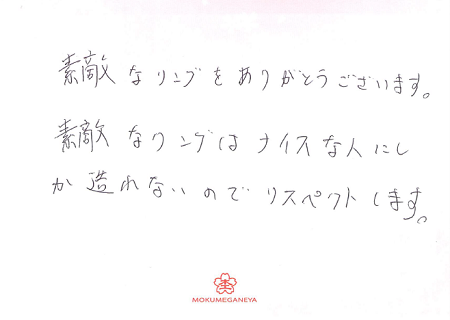 素敵なリングをありがとうございます。
素敵なリングはナイスな人にし
か造れないのでリスペクトします。
MOKUMEGANEYA